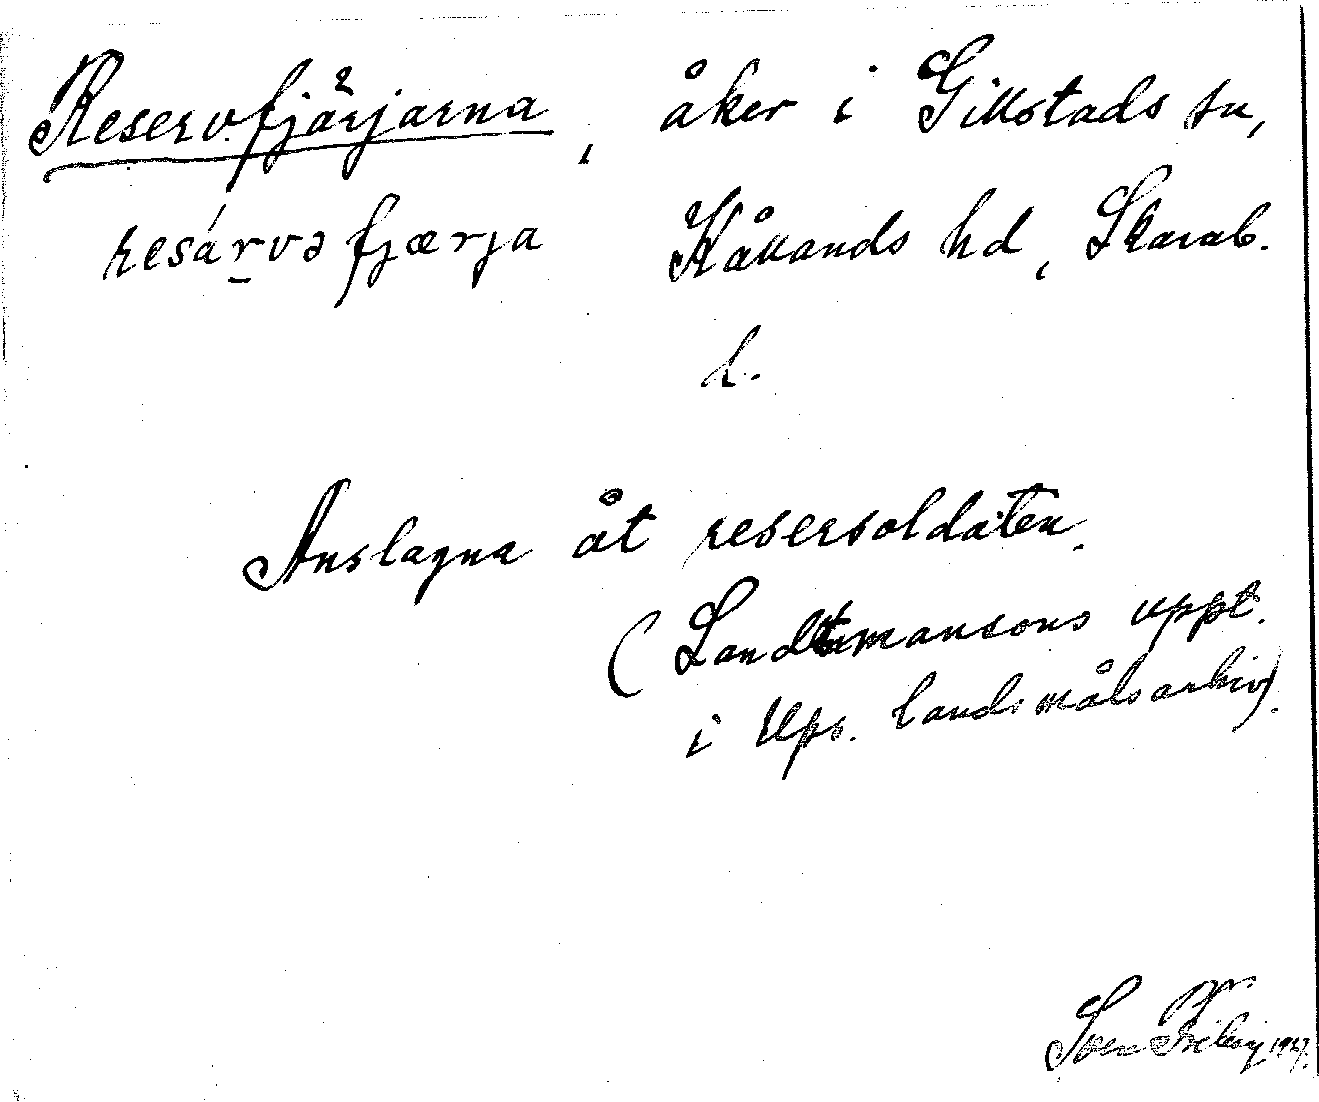 Reservfjärjarna, åker i Gillstads sn,
resárvə fjærja Kållands hd, Skarab.
l.
Anslagna åt reservsoldaten.
(Landtmansons uppt.
i Ups. landsmålsarkiv).
Sven